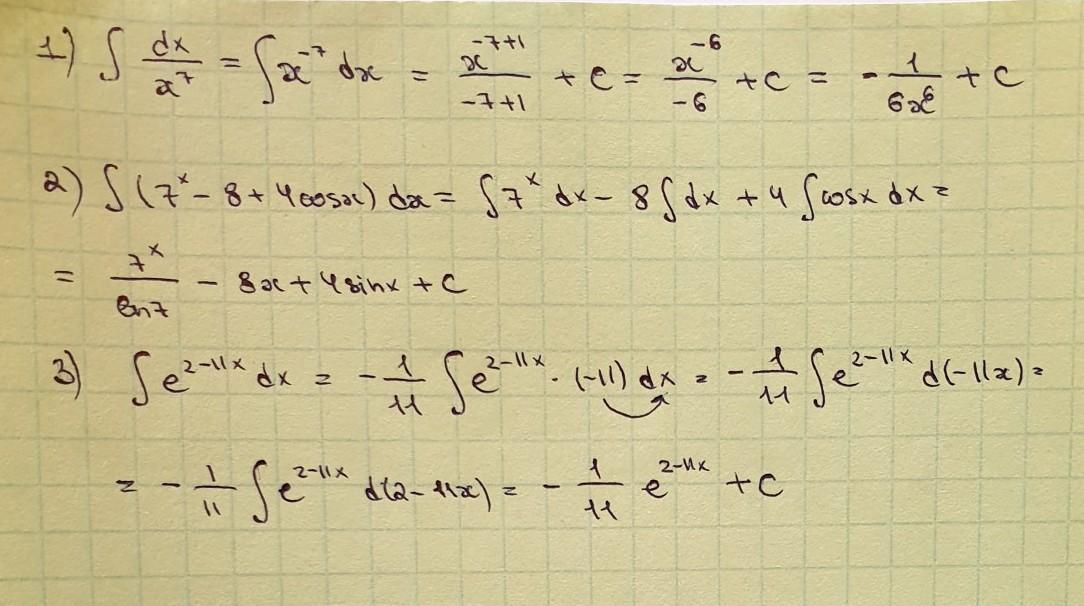 1) ∫ dx/x⁷ = ∫ x⁻⁷ dx = x⁻⁷⁺¹/-7+1 + C = x⁻⁶/-6 + C = - 1/6x⁶ + C
2) ∫ (7ˣ - 8 + 4cosx) dx = ∫ 7ˣ dx - 8 ∫ dx + 4 ∫ cosx dx =
= 7ˣ/ln7 - 8x + 4sinx + C
3) ∫ e²⁻¹¹ˣ dx = - 1/11 ∫ e²⁻¹¹ˣ · (-11) dx = - 1/11 ∫ e²⁻¹¹ˣ d(-11x) =
= - 1/11 ∫ e²⁻¹¹ˣ d(2-11x) = - 1/11 e²⁻¹¹ˣ + C